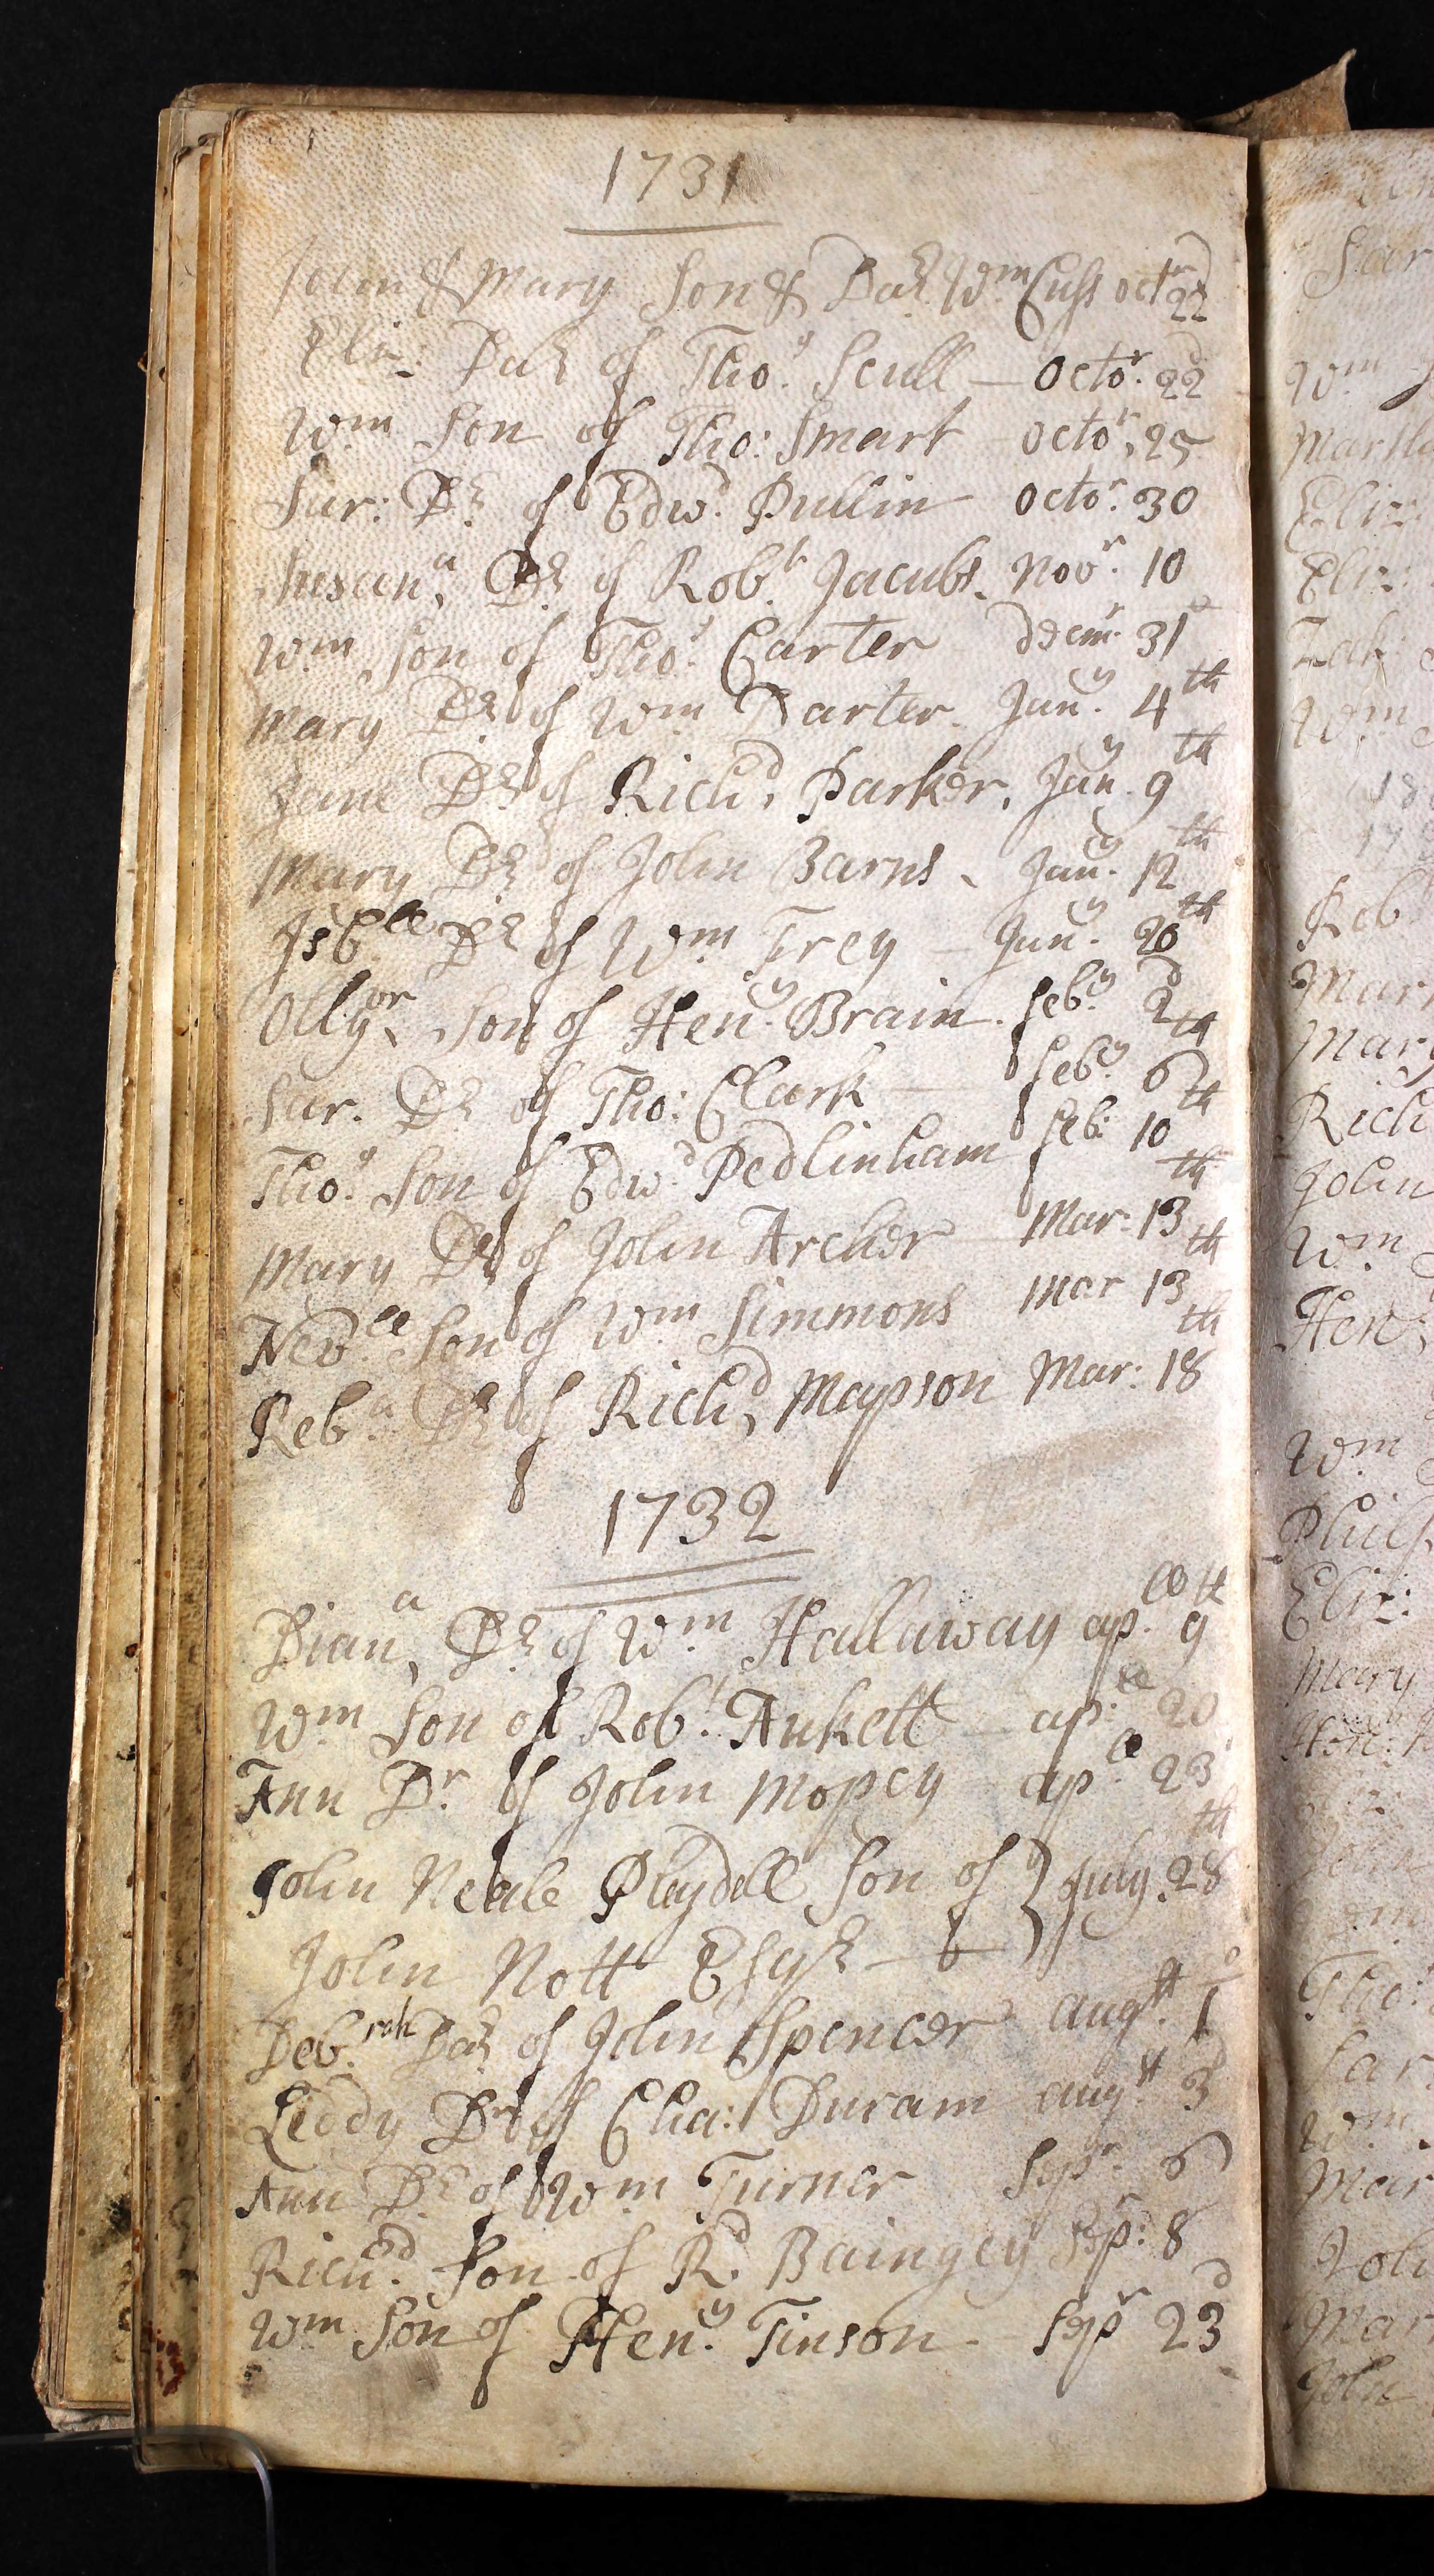 1731
John & Mary Son & Dar. Wm Cuss octr 22d
Eliz: Dar of Thos. Scull — Octor. 22d
Wm Son of Tho: Smart — octor. 25
Sar: Dr. of Edwd. Pullin — octor. 30
Susana, Dr. of Robt. Jacubs. Novr. 10
Wm, Son of Thos. Carter Decmr. 31
Mary Dr. of Wm Darter. Jany. 4th
Jane Dr. of Richd, Parker. Jany. 9th
Mary Dr. of John Barns. Jany. 12th
Isblle Dr. of Wm Frey — Jany. 20th
Ollyer Son of Heny. Brain. feby. 2d
Sar. Dr. of Tho: Clark — feby. 6th
Thos. Son of Edwd. Pedlinham feb: 10th
Mary Dr. of John Archer — Mar: 13th
Nevll Son of Wm Simmons Mar 13th
Reba. Dr. of Richd, Mapson Mar: 18th
1732
Diana, Dr. of Wm Hallaway apll. 9th
Wm Son of Robt. Ankett — apll. 20
Ann Dr. of John Mopcy apll. 23
John Neale Pleydell Son of } July. 28th
John Nott Esqr —
Deb.rah Dar of John Spencer augst. 1
Leddy Dr of Cha: Duram augst. 3d
Ann Dr. of Wm Turner Sepr. 6
Richd. Son of Rd. Baingey Sepr: 8
Wm Son of Heny. Tinson. Sepr 23d
Sar
Wm
Martha
Eliz:
Eliz:
Zach:
Wm
Robt
Mary
Rich
John
Wm
Hen
Wm
Eliz:
Mary
Tho:
Sar.
Wm
Mar
John
Mar
John